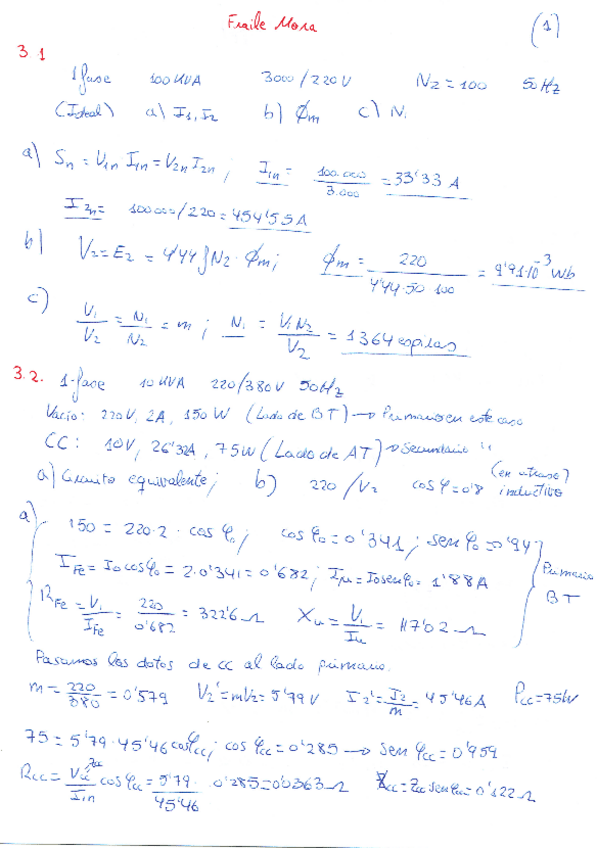 Fraile Mora (1)
3.1
1 fase 100 KVA 3000/220 V N2=100 50 Hz
(Ideal) a) I1, I2 b) ϕm c) N1
a) Sn = V1n I1n = V2n I2n ; I1n = 100.000/3.000 = 33'33 A
I2n = 100000/220 = 454'55 A
b) V2 = E2 = 4'44 f N2 · ϕm ; ϕm = 220/(4'44·50·100) = 9'91·10⁻³ Wb
c) V1/V2 = N1/N2 = m ; N1 = V1 N2/V2 = 1364 espiras
3.2. 1-fase 10 KVA 220/380 V 50 Hz
Vacio: 220V, 2A, 150 W (Lado de BT) → Primario en este caso
CC: 10V, 26'32A, 75 W (Lado de AT) → Secundario "
a) Circuito equivalente ; b) 220/V2 cos φ = 0'8 inductivo (en atraso)
a) 150 = 220·2·cos φ0 ; cos φ0 = 0'341 ; sen φ0 = 0'94
IFe = I0 cos φ0 = 2·0'341 = 0'682 ; Iμ = I0 sen φ0 = 1'88 A
Primario BT
RFe = V1/IFe = 220/0'682 = 322'6 Ω Xμ = V1/Iμ = 117'02 Ω
Pasamos los datos de cc al lado primario.
m = 220/380 = 0'579 V2' = mV2 = 5'79 V I2' = I2/m = 45'46 A Pcc = 75W
75 = 5'79 · 45'46 cos φcc ; cos φcc = 0'285 → sen φcc = 0'959
Rcc = Vcc/I1n cos φcc = 5'79/45'46 · 0'285 = 0'0363 Ω Xcc = Zcc sen φcc = 0'122 Ω